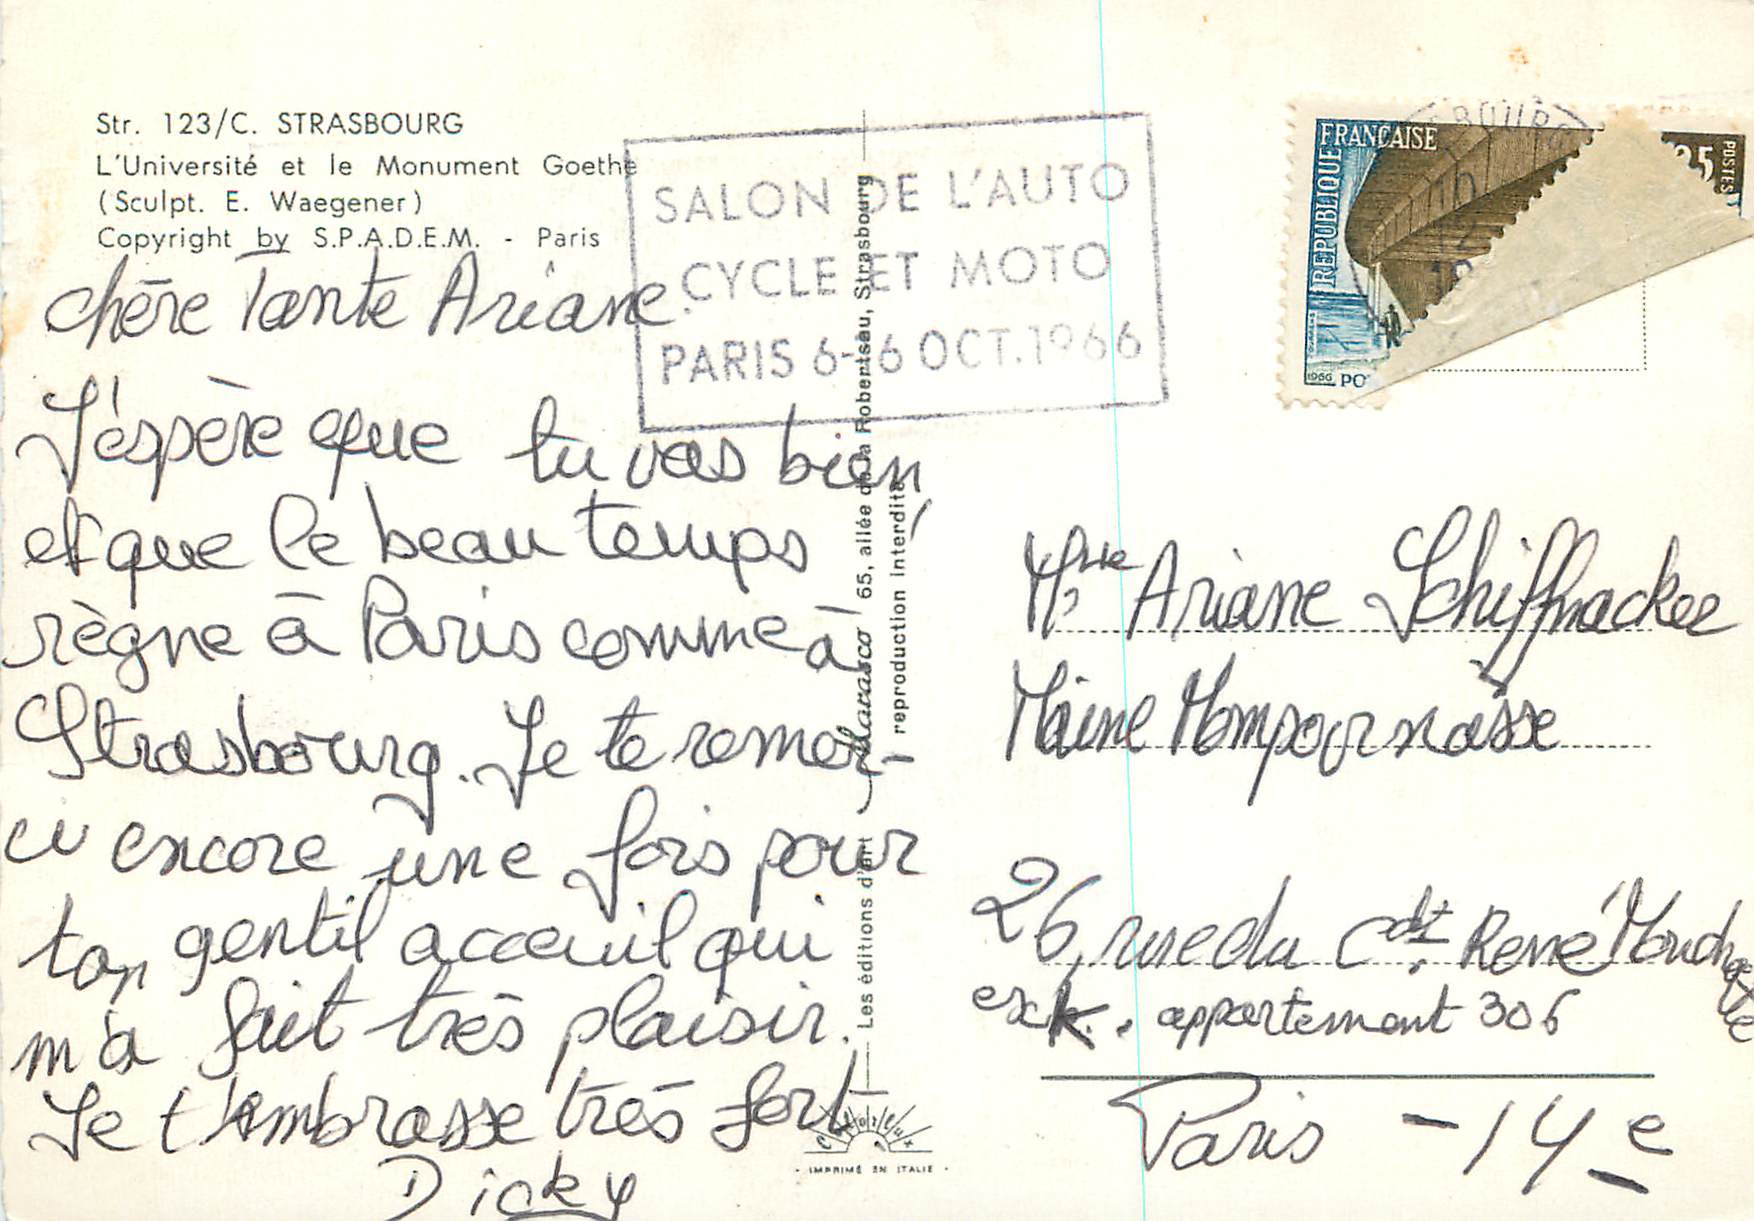 Str. 123/C. STRASBOURG
L'Université et le Monument Goethe
(Sculpt. E. Waegener)
Copyright by S.P.A.D.E.M. - Paris
SALON DE L'AUTO
CYCLE ET MOTO
PARIS 6-16 OCT. 1966
RÉPUBLIQUE FRANÇAISE
POSTES
1966
chère Tante Ariane.
J'éspère que tu vas bien,
et que le beau temps
règne à Paris comme à
Strasbourg. Je te remer-
ci encore une fois pour
ton gentil acceuil qui
m'a fait très plaisir.
Je t'embrasse très fort
Dicky
Les éditions d'art 65, allée de la Robertsau, Strasbourg
reproduction interdite
IMPRIMÉ EN ITALIE
Mlle Ariane Schiffnacker
Maine Mompournasse
26, rue du Cdt. René Mouchotte
appartement 306
Paris - 14e